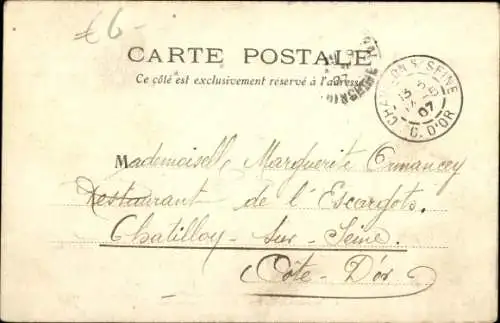 £6-
CARTE POSTALE
Ce côté est exclusivement réservé à l'adresse
CHATILLON S/ SEINE
13 2
07
C. D'OR
Mademoiselle Marguerite
Restaurant de l'Escargots.
Chatillon-sur-Seine.
Côte-D'or